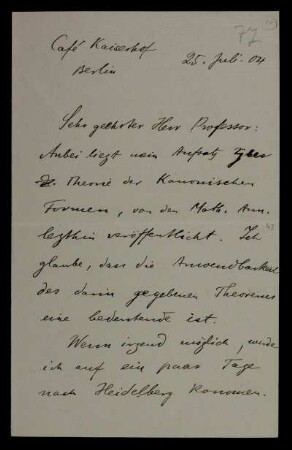 77
Café Kaiserhof
Berlin
25. Juli. 04
Sehr geehrter Herr Professor:
Anbei liegt mein Aufsatz Zur
Theorie der Kanonischen
Formen, von den Math. Ann.
letzthin veröffentlicht. Ich
glaube, dass die Anwendbarkeit
des darin gegebenen Theorems
eine bedeutende ist.
Wenn irgend möglich, werde
ich auf ein paar Tage
nach Heidelberg kommen.